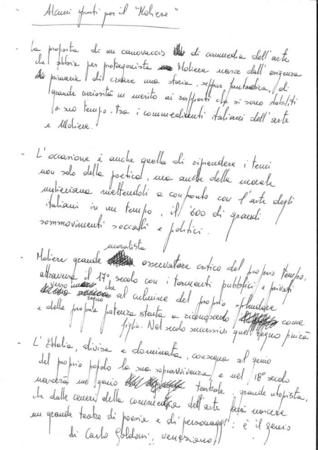 Alcuni spunti per il "Molière"
- La proposta di un canovaccio di commedia dell'arte
che abbia per protagonista Molière nasce dall'esigenza
primaria di creare una storia, seppur fantastica, di
grande curiosità in merito ai rapporti che si sono stabiliti
a suo tempo tra i commedianti italiani dell'arte
e Molière.
- L'occasione è anche quella di riprendere i temi
non solo della poetica, ma anche della morale
molieriana mettendoli a confronto con l'arte degli
italiani in un tempo, il '600 di grandi
sommovimenti sociali e politici.
moralista
- Molière grande osservatore critico del proprio tempo,
attraversa il 17° secolo con i tormenti pubblici e privati
verso che al culmine del proprio splendore
e della propria potenza stenta a riconoscerlo come
figlio. Nel secolo successivo quel
- L'Italia, divisa e dominata, consegna al genio
del proprio popolo la sua sopravvivenza e nel 18° secolo
un genio teatrale, grande utopista,
che dalle ceneri della commedia dell'arte farà nascere
un grande teatro di poesia e di personaggi: è il genio
di Carlo Goldoni, veneziano!